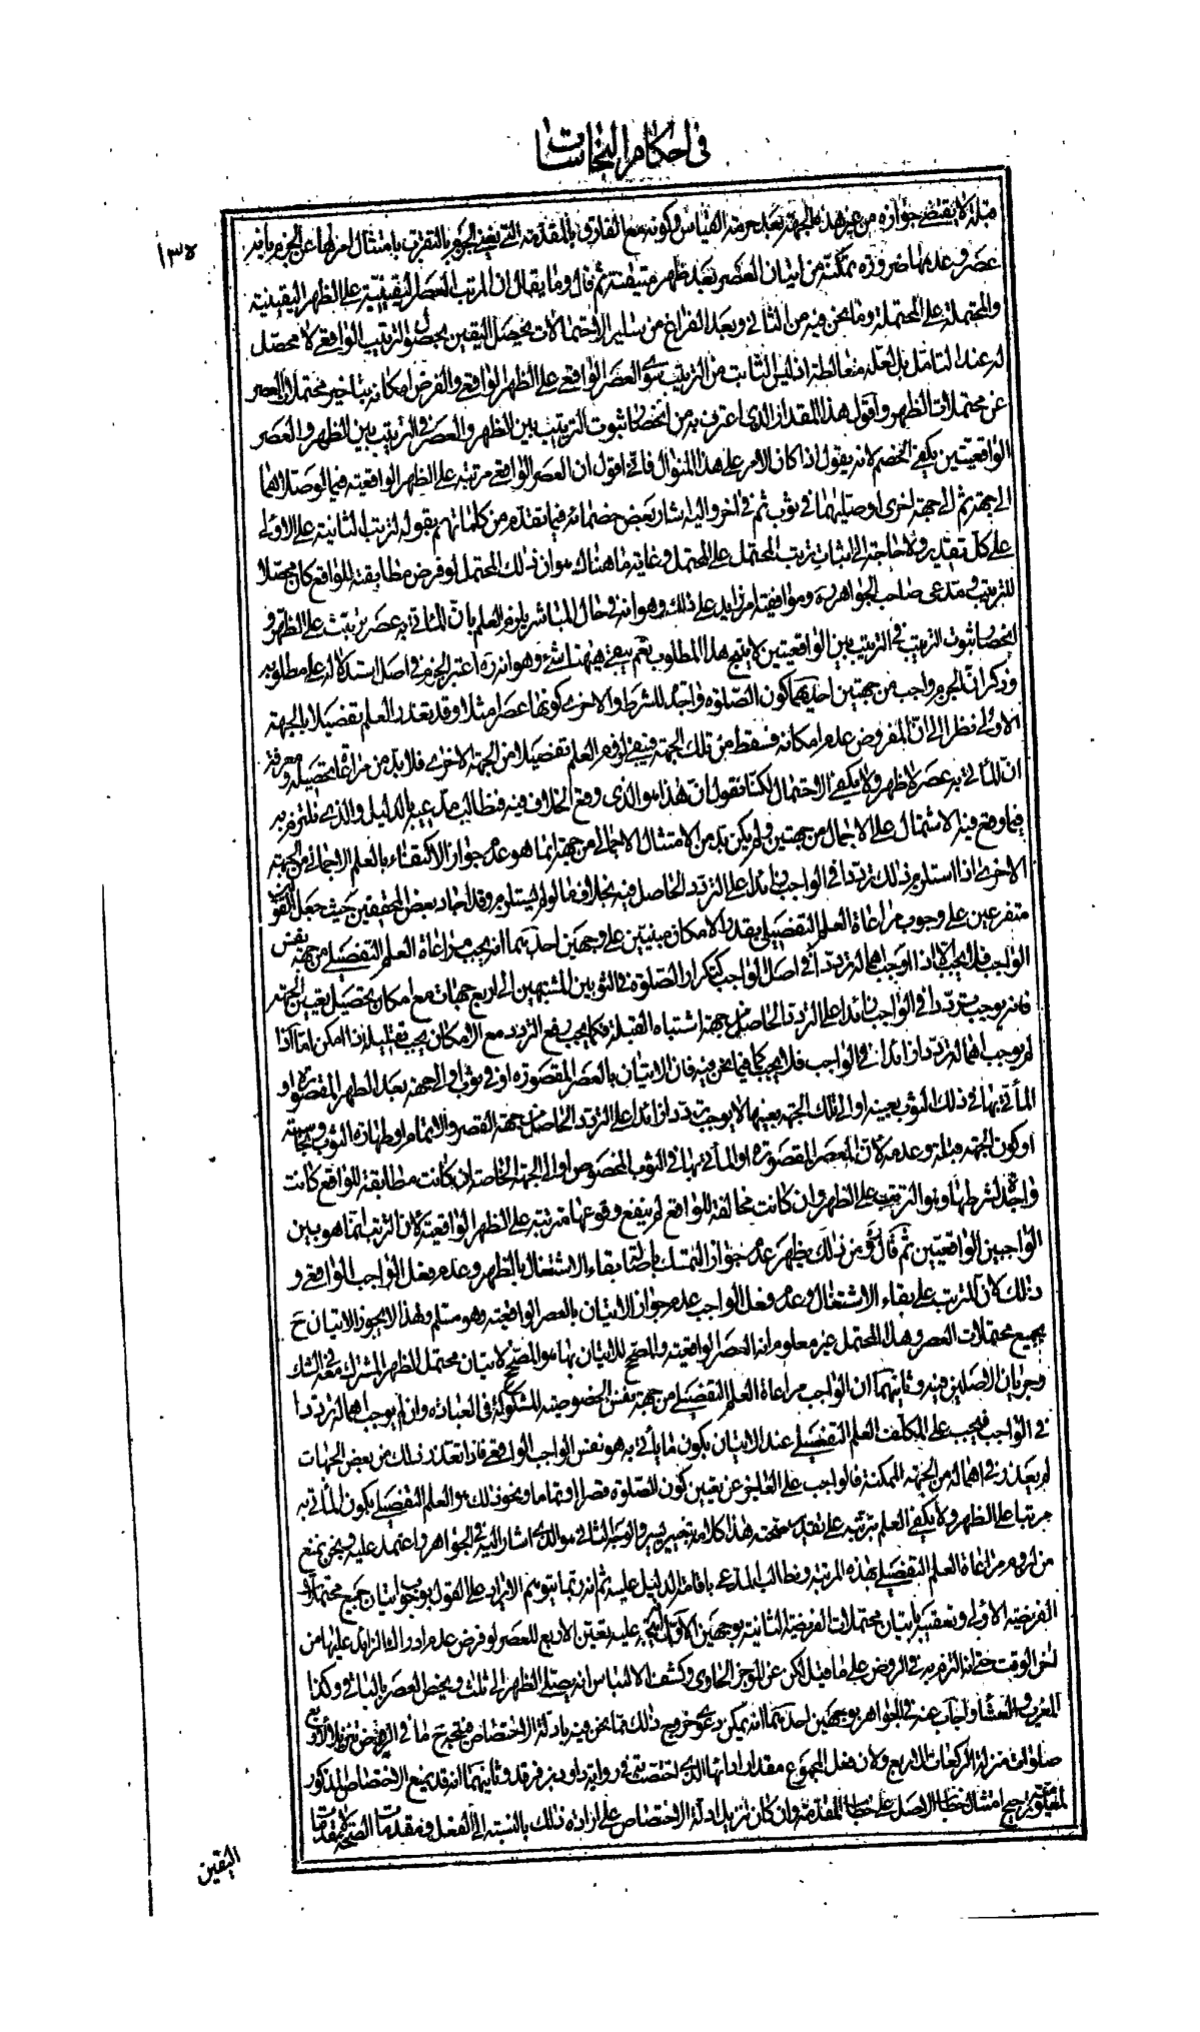 في احكام النجاسات
١٣٥
مثله لا يقتضي جوازه من غير هذه الجهة بعد حرمة القياس وكونه مع الفارق بالمقدمة التي يعني الجزم بالتقرب بامتثال امر لها عن الجزم بانه
عصر وعدمها ضرورة تمكنه من اتيان العصر بعد ظهر متيقنة ثم قال وما يقال ان المرتب العصر اليقينية على الظهر اليقينية
والمحتملة على المحتملة وما نحن فيه من الثاني وبعد الفراغ من سائر الاحتمالات يحصل اليقين بحصول الترتيب الواقعي لا محصل
له عند التامل بل لعله مغالطة اذ ليس الثابت من الترتيب سوى العصر الواقعي على الظهر الواقعي والفرض امكانه بتاخير محتملات العصر
عن محتملات الظهر واقول هذا المقدار الذي اعترف به من انحصار ثبوت الترتيب بين الظهر والعصر في الترتيب بين الظهر والعصر
الواقعيتين يكفي الخصم لانه يقول اذا كان الامر على هذا المنوال فاني اقول ان العصر الواقعي مرتبة على الظهر الواقعية فيما لو صلاهما
الى جهة ثم الى جهة اخرى او صليهما في ثوب ثم في اخر واليه اشار بعض خصمائه فيما تقدم من كلماتهم بقوله لترتب الثانية على الاولى
على كل تقدير ولا حاجة الى اثبات ترتب المحتمل على المحتمل وغاية ما هناك هو ان ذلك المحتمل لو فرض مطابقته للواقع كان محصلا
للترتيب ومدعى صاحب الجواهر ره وموافقيه امر زايد على ذلك وهو انه في حال المباشر يلزم العلم بان الماتي به عصر مرتبت على الظهر و
انحصار ثبوت الترتيب في الترتيب بين الواقعيتين لا ينتج هذا المطلوب نعم يبقى هيهنا شئ وهو انه ره اعتبر الجزم في اصل استدلاله على مطلوبه
وذكر ان الجزم واجب من جهتين احديهما كون الصلوة واجدة للشرط والاخرى كونها عصرا مثلا وقد تعذر العلم تفصيلا بالجهة
الاولى نظرا الى ان المفروض عدم امكانه فسقط من تلك الجهة فينبغي لوفر العلم تفصيلا من الجهة الاخرى فلا بد من مراعاة تحصيله ومعرفة
ان الماتي به عصر لا ظهر ولا يكفي الاحتمال لكنا نقول ان هذا هو الذي وقع الخلاف فيه فنطالب مدعيه بالدليل والذي نلتزم به
فيما وقع فيه الاشتمال على الاجمال من جهتين ولم يكن بد من الامتثال الاجمالي من جهة انما هو عدم جواز الاكتفاء بالعلم الاجمالي من الجهة
الاخرى اذا استلزم ذلك ترددا في الواجب زائدا على التردد الحاصل فيه بخلاف ما لو لم يستلزم وقد اجاد بعض المحققين حيث جعل القولين
متفرعين على وجوب مراعاة العلم التفصيلي بقدر الامكان مبنيتين على وجهين احدهما انه يجب مراعاة العلم التفصيلي من جهة نفس
الواجب فلا يجب الا اذا اوجب اهماله ترددا في اصل الواجب كتكرار الصلوة في الثوبين المشتبهين الى اربع جهات مع امكان تحصيل يقين الجهة
فانه يوجب ترددا في الواجب زائدا على التردد الحاصل من جهة اشتباه القبلة فكما يجب رفع التردد مع الامكان يجب تقليله اذا امكن اما اذا
لم يوجب اهماله ترددا زائدا في الواجب فلا يجب كما فيما نحن فيه فان الاتيان بالعصر المقصورة او في ثوب او الى جهة بعد الظهر المقصورة او
الماتي بها في ذلك الثوب بعينه او الى تلك الجهة بعينها لا يوجب ترددا زائدا على التردد الحاصل من جهة القصر والاتمام او طهارة الثوب ونجاسته
او كون الجهة قبلة وعدمه لان العصر المقصورة او الماتي بها في الثوب المخصوص او الى الجهة الخاصة ان كانت مطابقة للواقع كانت
واجدة لشرطها وهو الترتب على الظهر وان كانت مخالفة للواقع لم ينفع وقوعها مترتبة على الظهر الواقعية لان الترتب انما هو بين
الواجبين الواقعيتين ثم قال ره ومن ذلك يظهر عدم جواز التمسك باصالتي بقاء الاشتغال بالظهر وعدم فعل الواجب الواقعي و
ذلك لان المترتب على بقاء الاشتغال وعدم فعل الواجب عدم جواز الاتيان بالعصر الواقعية وهو مسلم ولهذا لا يجوز الاتيان ح
بجميع محتملات العصر وهذا المحتمل غير معلوم انه العصر الواقعية والمصحح للاتيان بها هو المصحح لاتيان محتمل الظهر المشترك معه في الشك
وجريان الاصلين فيه وثانيهما ان الواجب مراعاة العلم التفصيلي من جهة نفس الخصوصية المشكوكة في العبادة وان لم يوجب اهماله ترددا
في الواجب فيجب على المكلف العلم التفصيلي عند الاتيان بكون ما ياتي به هو نفس الواجب الواقعي فاذا تعذر ذلك من بعض الجهات
لم يعذر في اهماله من الجهة الممكنة فالواجب على العاجز عن تعيين كون الصلوة قصرا او تماما ونحو ذلك هو العلم التفصيلي بكون الماتي به
مرتبا على الظهر ولا يكفي العلم بترتبه على تقدير صحته هذا كلامه بتغيير يسير والوجه الثاني هو الذي اشار اليه في الجواهر واعتمد عليه ونحن نمنع
من لزوم مراعاة العلم التفصيلي بهذه المرتبة ونطالب المدعي باقامة الدليل عليه ثم انه ربما يتوهم الايراد على القول بوجوب اتيان جميع محتملات
الفريضة الاولى وتعقيبها باتيان محتملات الفريضة الثانية بوجهين الاول انه يتجه عليه تعين الاربع للعصر لو فرض عدم ادراك الزايد عليها من
اخر الوقت حتى انه التزم به في الروض على ما قيل لكن عن الموجز الحاوي وكشف الالتباس انه يصلي الظهر الى ثلث ويخص العصر بالباقي وكذا
المغرب والعشاء واجاب عنه في الجواهر بوجهين احدهما انه يمكن دعوى خروج ذلك مما نحن فيه بادلة الاختصاص فيتجه ح ما في الروض تنزيلا لاربع
صلوات منزلة الركعات الاربع ولان فعل المجموع مقدار ادائها الذي اختصت به في رواية داود بن فرقد وثانيهما انه قد يمنع الاختصاص المذكور
لمعلومية ترجيح امتثال خطاب الاصل على خطاب المقدمة وان كان تنزيل ادلة الاختصاص على ارادة ذلك بالنسبة الى الفعل ومقدمات الصحة لا مقدمات
اليقين